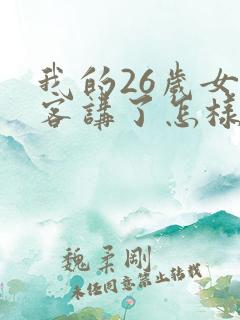 我的26歲女
客講了怎樣
魏柔剛
未经同意禁止转载